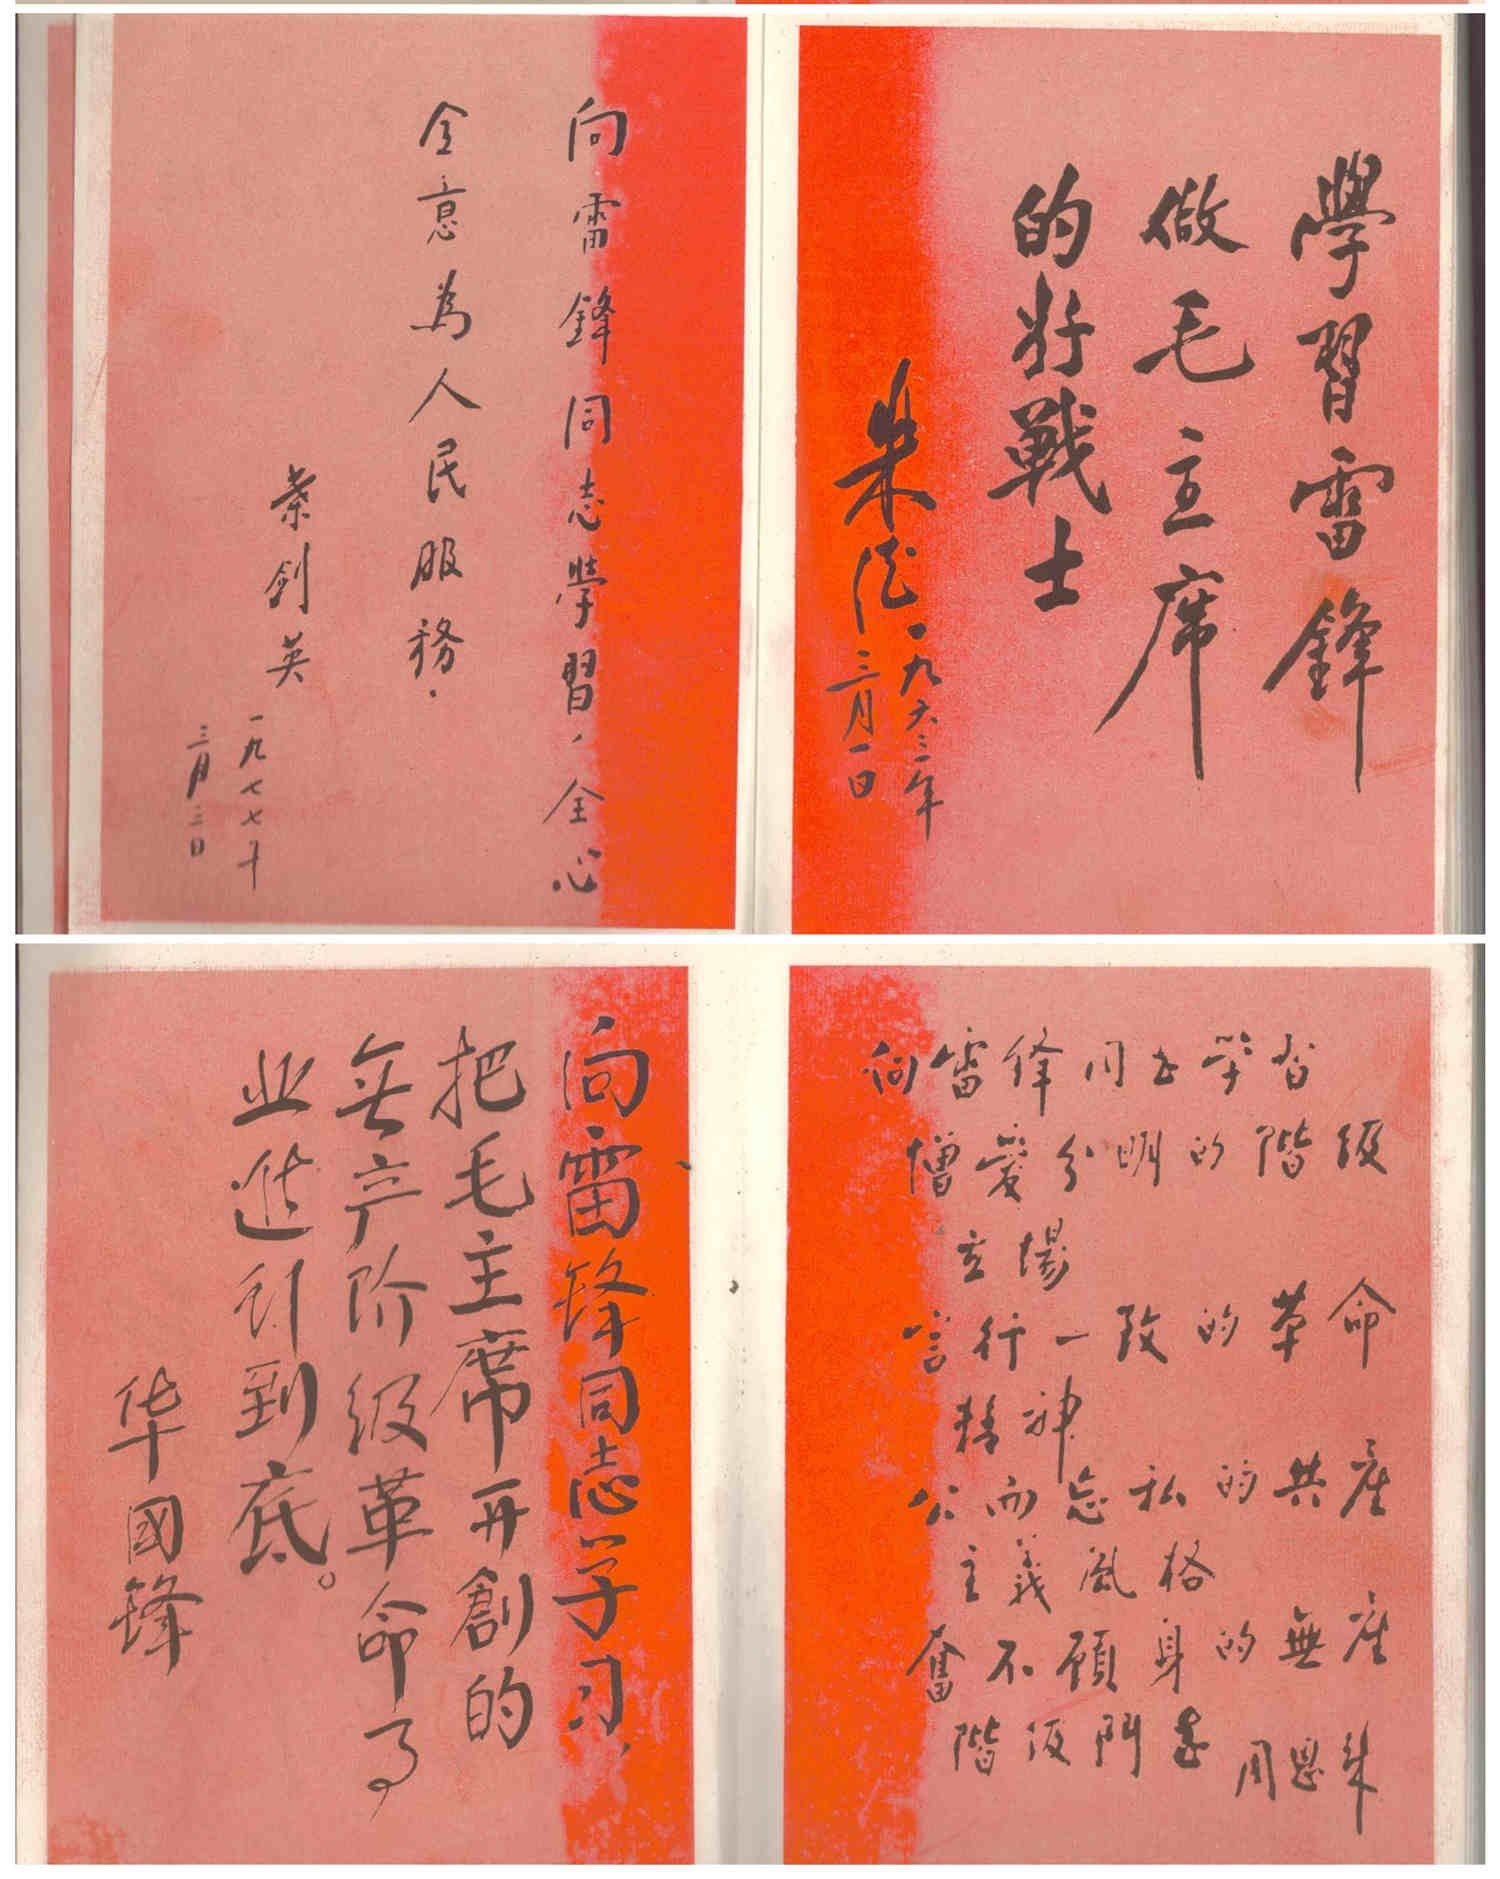 學習雷鋒
做毛主席
的好戰士
朱德
一九六三年
三月一日
向雷鋒同志學習，全心
全意為人民服務．
葉劍英
一九七七年
三月三日
向雷鋒同志学習
憎愛分明的階級
立場
言行一致的革命
精神
公而忘私的共產
主義風格
奮不顧身的無產
階級鬥志
周恩来
向雷锋同志学习，
把毛主席开創的
無产阶级革命事
业進行到底。
华國锋